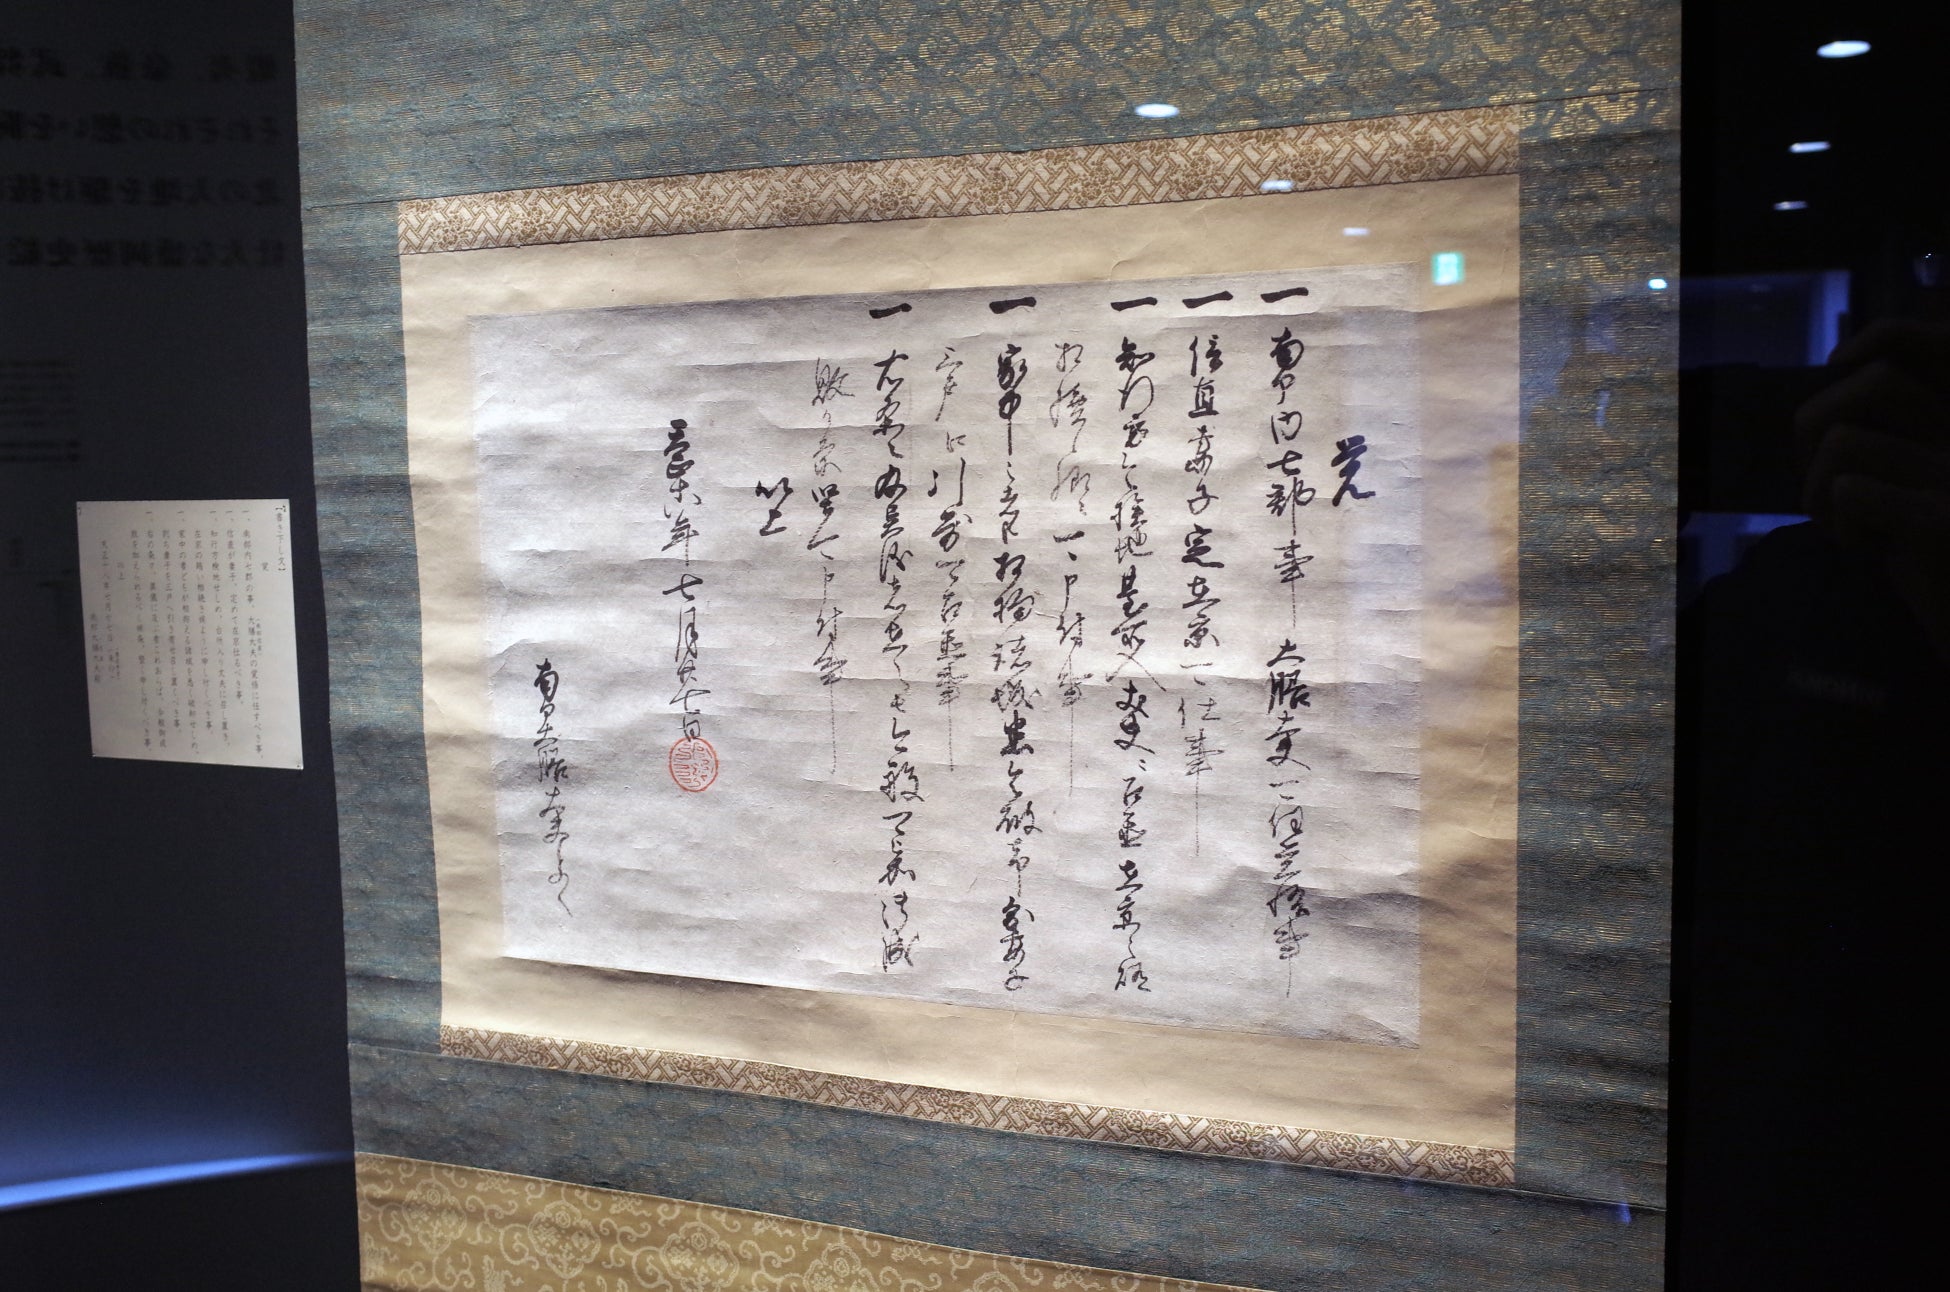 覚
一 南部内七郡事大膳大夫可任覚悟事
一 信直妻子定在京可仕事
一 知行方令検地臺所入丈夫ニ召置在京之賄
相続候様ニ可申付事
一 家中之者共相拘諸城悉令破却則妻子
三戸江引寄可召置事
一 右条々及異儀者在之者今般可被加御成
敗候条堅可申付事
以上
天正十八年七月廿七日
南部大膳大夫とのへ
【書き下し文】
覚
一、南部内七郡の事、大膳大夫の覚悟に任すべき事、
一、信直が妻子、定めて在京仕るべき事、
一、知行方検地せしめ、台所入り丈夫に召し置き、
在京の賄い相続き候ように申し付くべき事、
一、家中の者どもが相拘える諸城を悉く破却せしめ、
則ち妻子を三戸へ引き寄せ召し置くべき事、
一、右の条々、異儀に及ぶ者これあらば、今般御成
敗を加えらるべく候条、堅く申し付くべき事
以上
天正十八年七月廿七日
南部大膳大夫殿